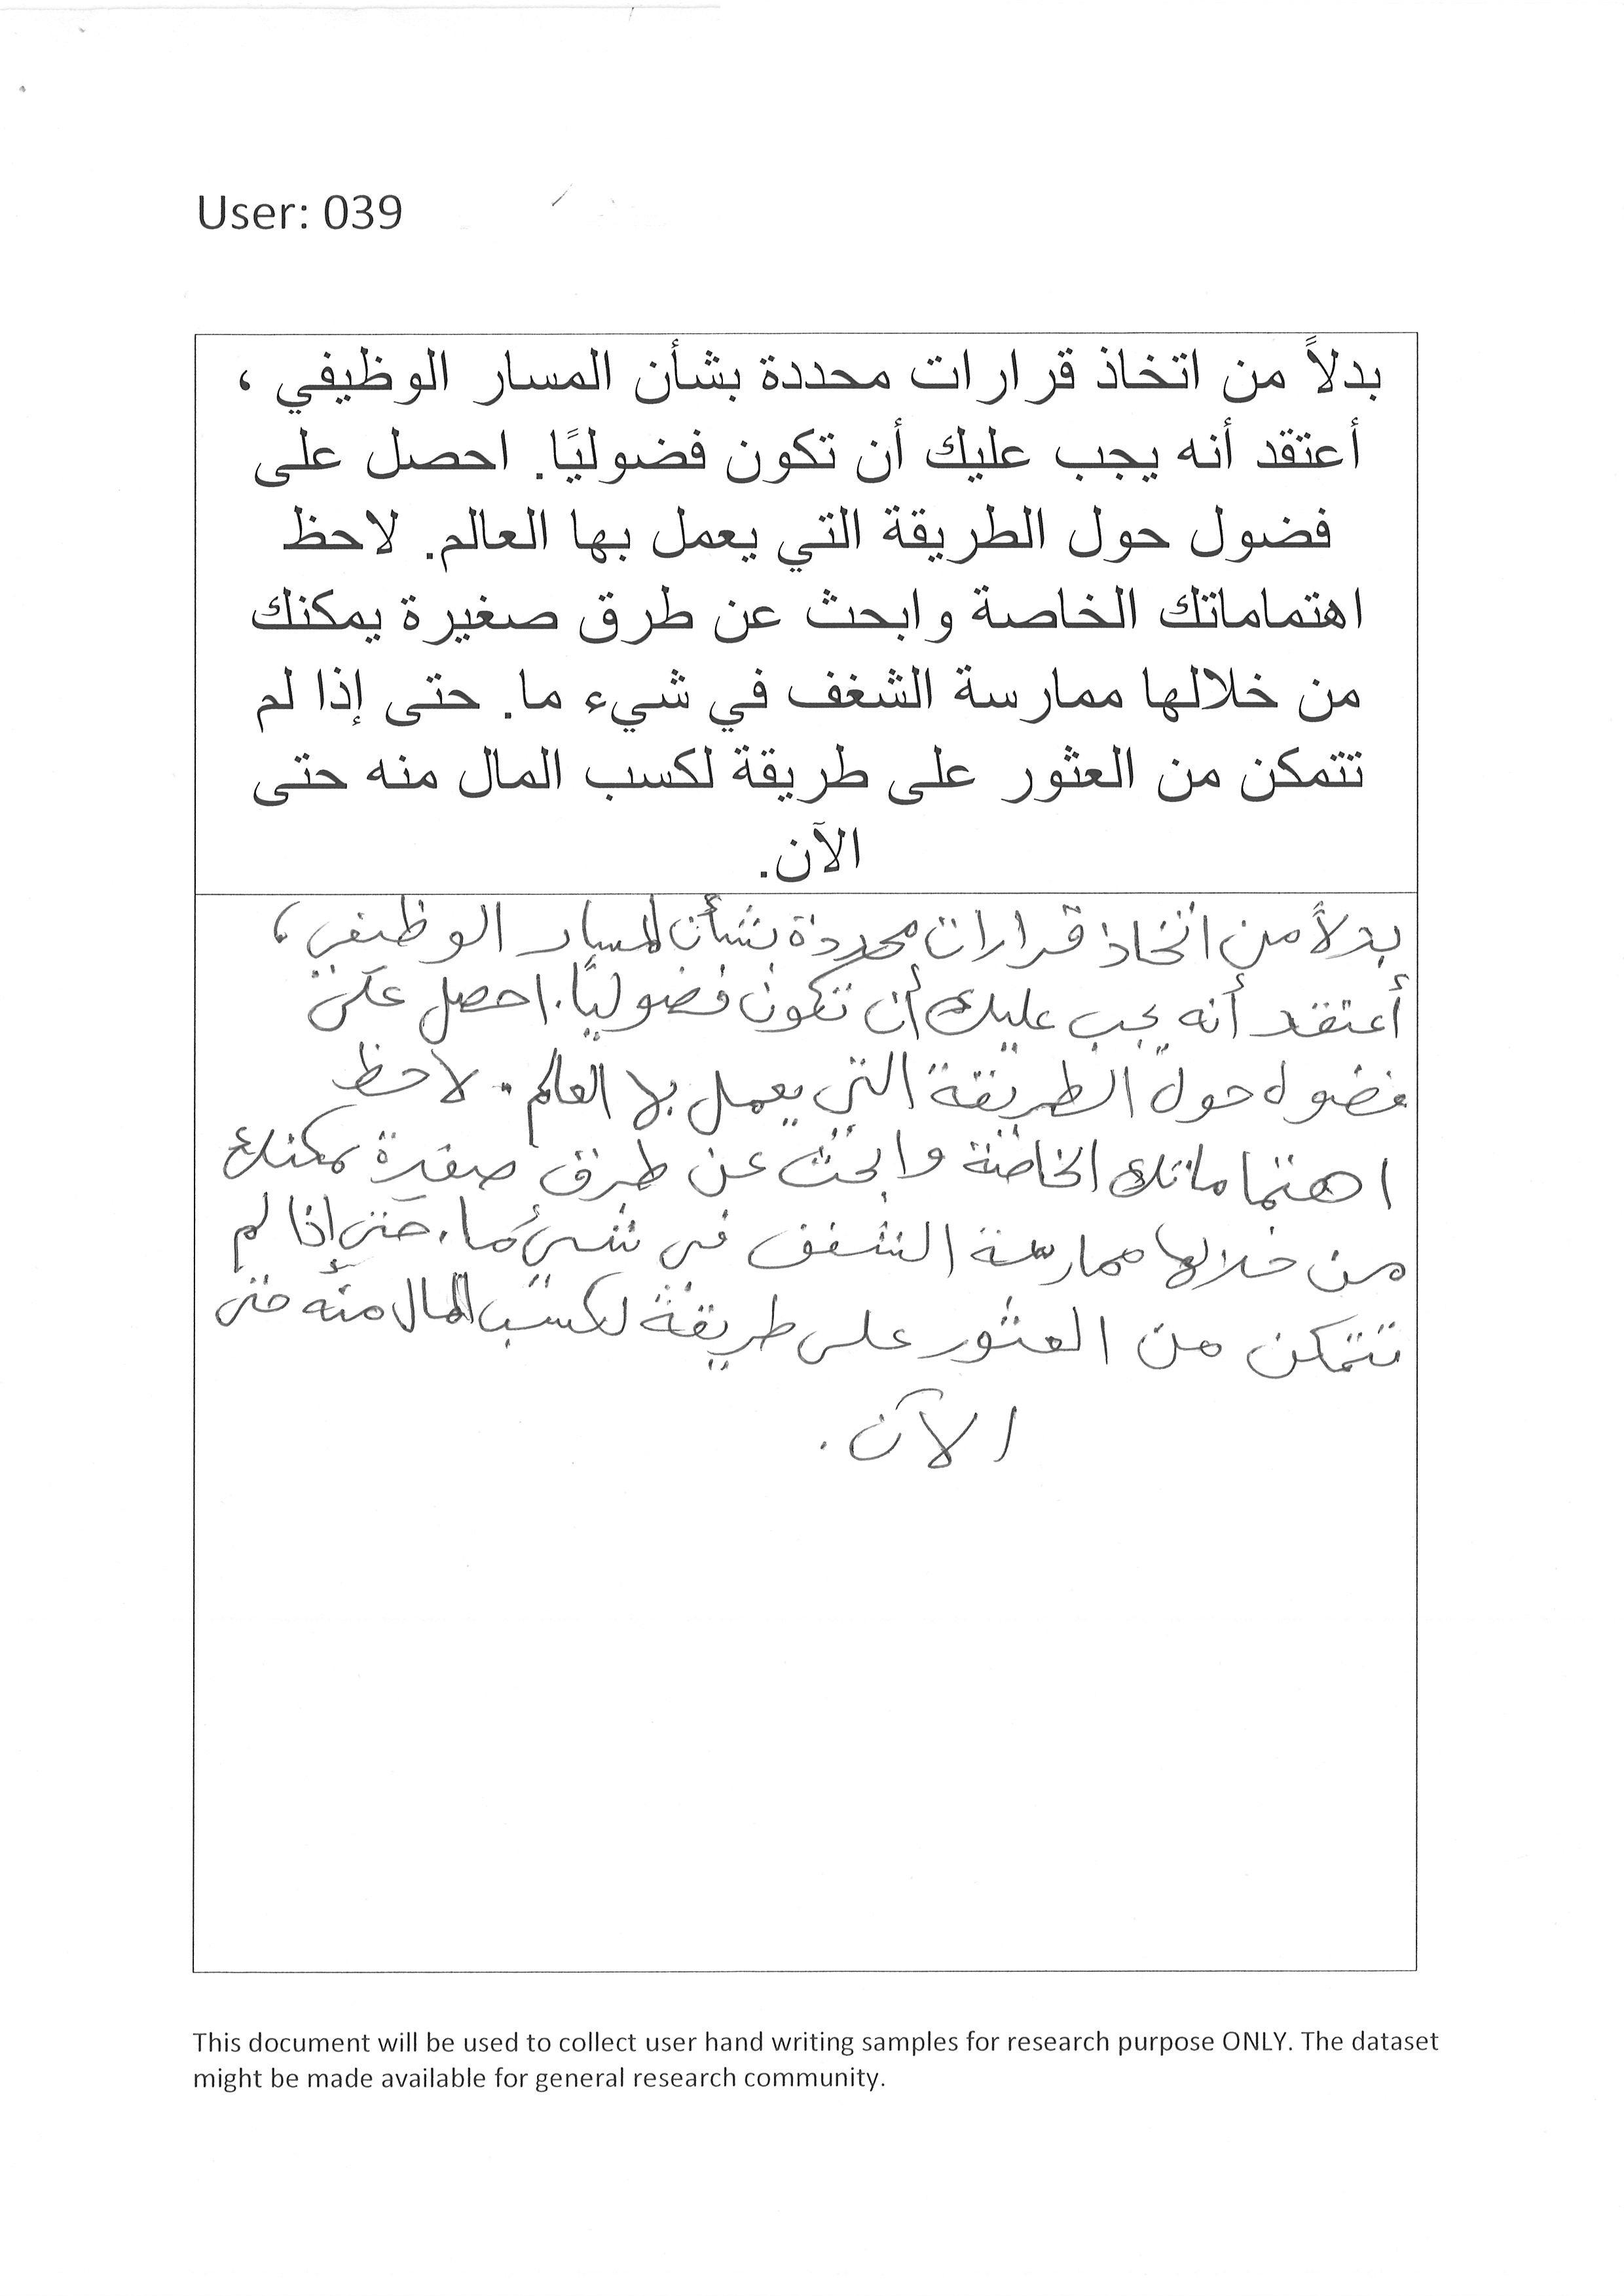 User: 039
بدلاً من اتخاذ قرارات محددة بشأن المسار الوظيفي ،
أعتقد أنه يجب عليك أن تكون فضوليًا. احصل على
فضول حول الطريقة التي يعمل بها العالم. لاحظ
اهتماماتك الخاصة وابحث عن طرق صغيرة يمكنك
من خلالها ممارسة الشغف في شيء ما. حتى إذا لم
تتمكن من العثور على طريقة لكسب المال منه حتى
الآن.
بدلاً من اتخاذ قرارات محددة بشأن المسار الوظيفي ،
أعتقد أنه يجب عليك أن تكون فضوليًا. احصل على
فضول حول الطريقة التي يعمل بها العالم. لاحظ
اهتماماتك الخاصة وابحث عن طرق صغيرة يمكنك
من خلالها ممارسة الشغف في شيء ما. حتى اذا لم
تتمكن من العثور على طريقة لكسب المال منه حتى
الآن.
This document will be used to collect user hand writing samples for research purpose ONLY. The dataset
might be made available for general research community.